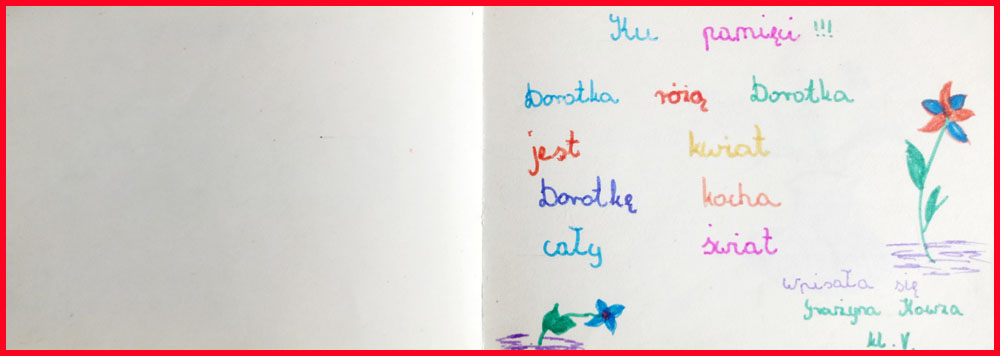 Ku pamięci !!!
Dorotka różą Dorotka
jest kwiat
Dorotkę kocha
cały świat
wpisała się
Grażyna Kowza
kl. V.